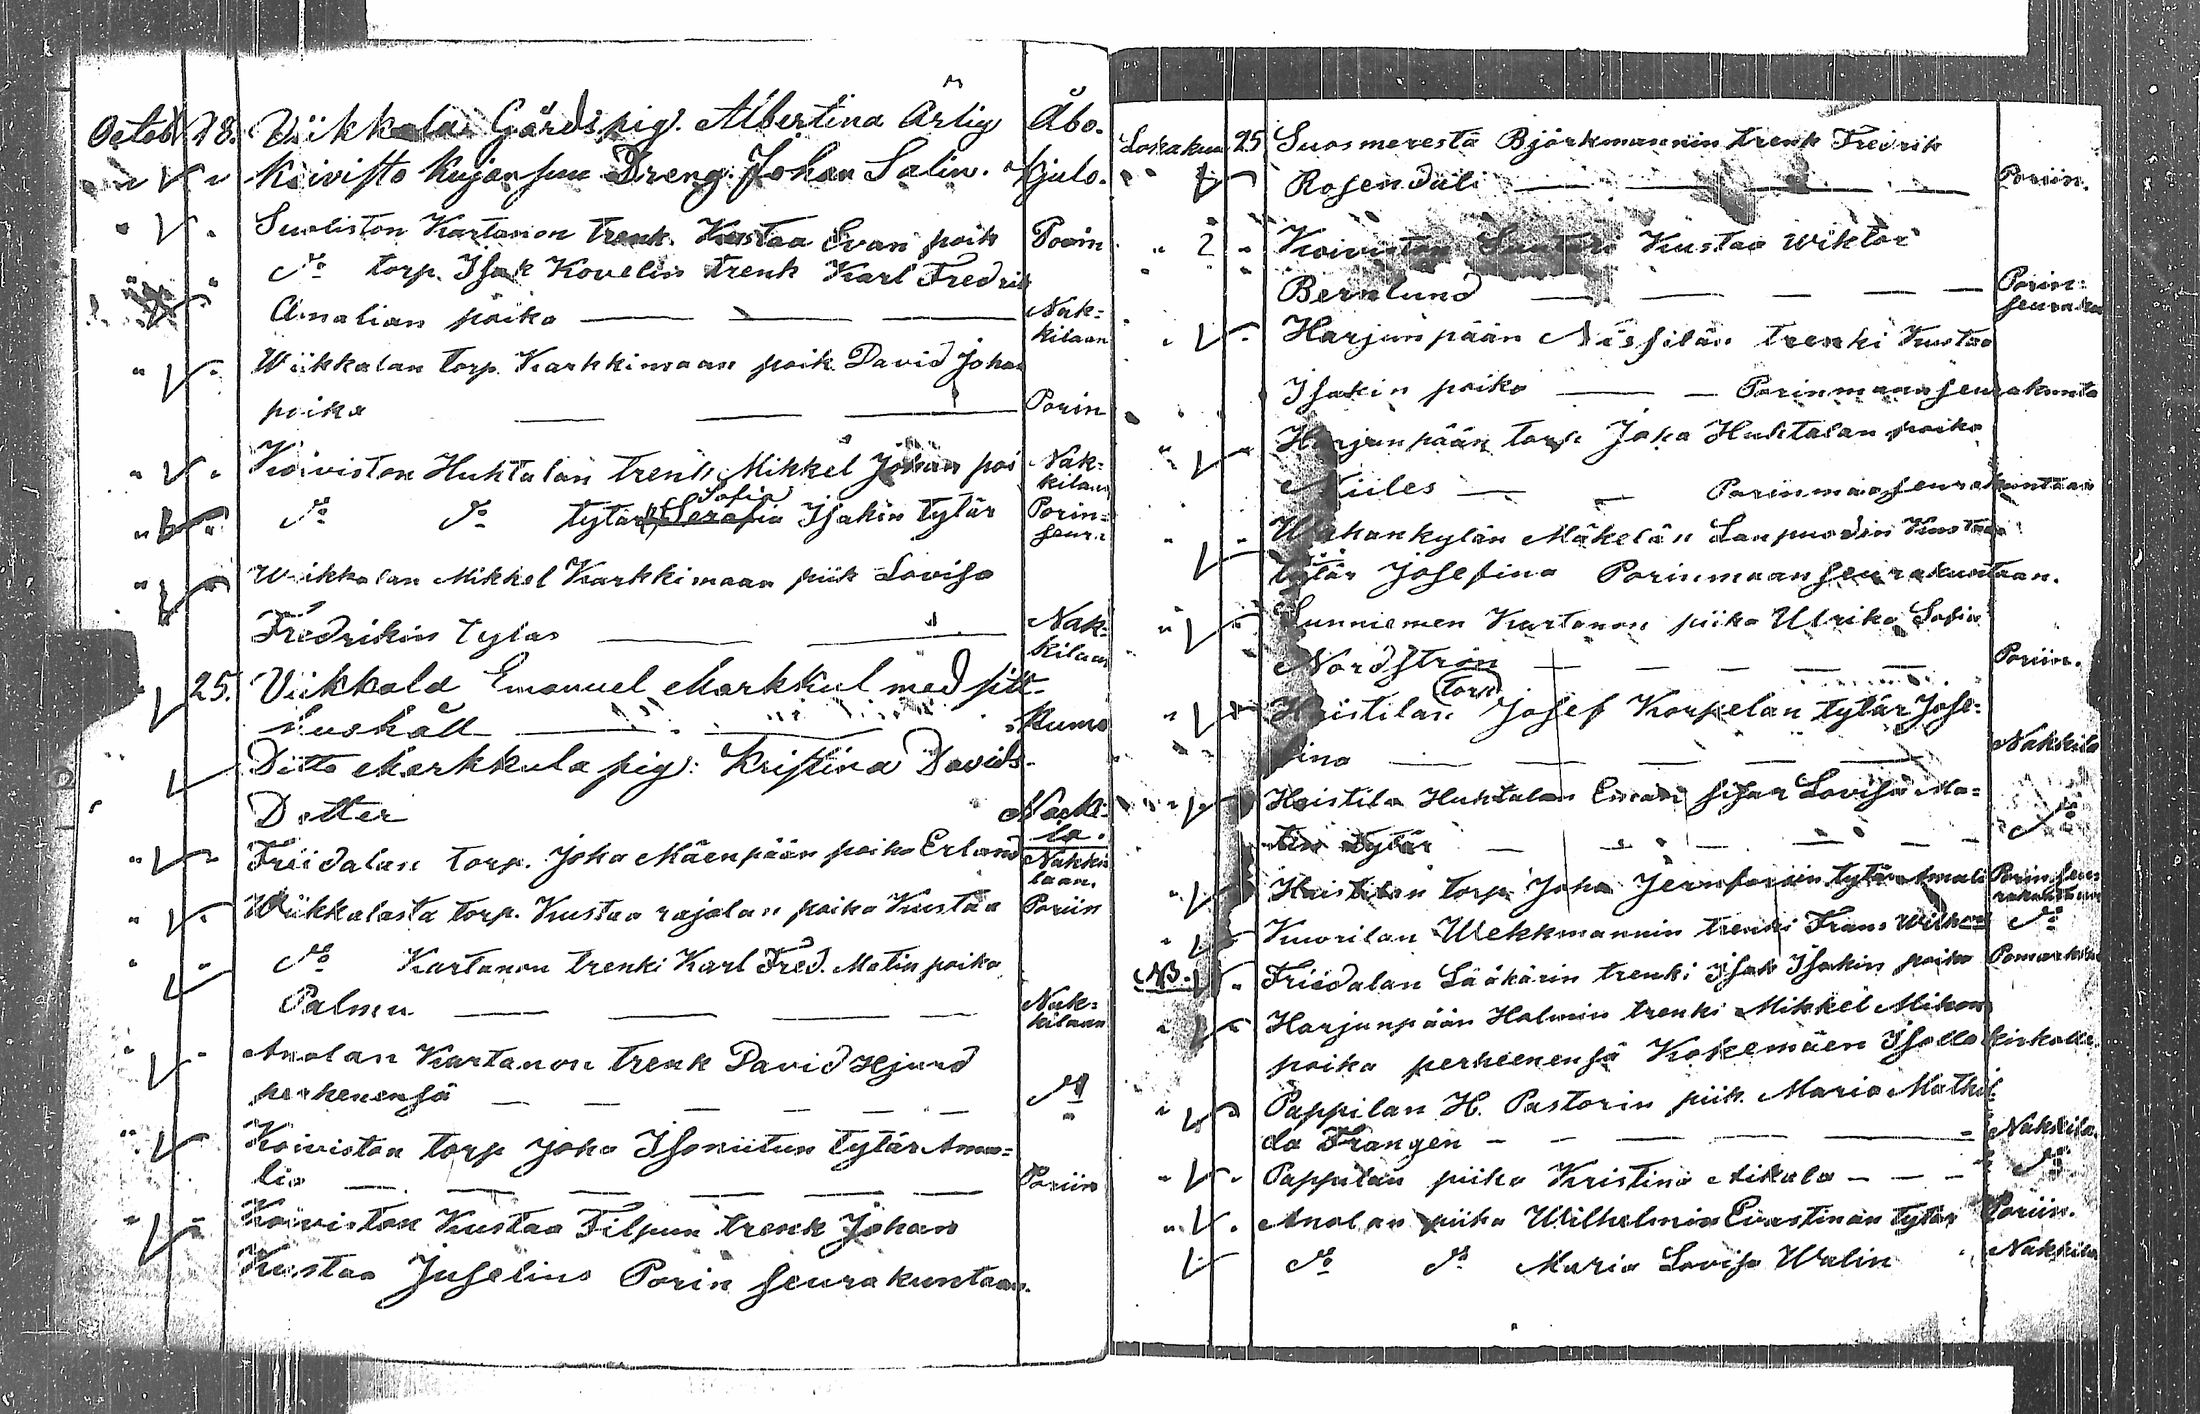 Octob 18. Viikkala Gårds pig. Albertina Ärlig Åbo.
Koivisto Kujansuu Dreng. Johan Salin. Kjulo.
Suoliston Kartanon trenk. Kustaa Evan poik Poriin
Do torp. Isak Kovelin trenk Karl Fredrik
Amalian poika — — — Nak=
kilaan
Wiikkalan torp. Karhkimaan poik David Johan
poika — — — Porin
Koiviston Huhtalan trenk Mikkel Johan poi Nak=
kilaan
Sofia
Do Do tytär Serafia Isakin tytär Porin=
seur.
Wiikkalan Mikkel Karhkimaan piik Lovisa
Fredrikin tytär — — Nak=
kilaan
25. Viikkala Emanuel Markkul med sitt
hushåll — — Kumo
Ditto Markkula pig: Kristina Davids
Dotter Nacki-
la.
Friidalan torp. Joha Mäenpään poika Erland Nakki
laan.
Wiikkalasta torp. Kustaa rajalan poika Kustaa Poriin
Do Kartanon trenki Karl Fred. Matin poika
Palmu — — — — Nak=
kilaan
Anolan Kartanon trenk David Hjurd
perhenensä — — — — — Do
Koiviston torp Joha Isoniitun tytär Ama=
lia — — — — — Poriin
Koiviston Kustaa Filpun trenk Johan
Kustaa Juselius Porin seurakuntaan.
Lokakuu 25 Suosmeresta Björkmannin trenk Fredrik
Rosendali — — — Poriin.
Koiviston Kustaa Wiktor
Bernlund — — — — Porin=
seuraku
Harjunpään Nissilän trenki Kustaa
Isakin poika — — Porinmaan seurakunta
Harjunpään torp Joha Huhtalan poika
Niiles — — Porinmaan seurakuntaan
Wahankylän Mäkelän Kustaa
tytär Josefina Porinmaan seurakuntaan.
Sunniemen Kartanon piika Ulrika Sofia
Nordström — — — — Poriin.
torp
Haistilan Josef Korpelan tytär Jose=
fina — — — — — Nakkila
Haistila Huhtalan Eman sisar Lovisa Ma=
tin tytär — — — — Do
Haistilan torp Joha tytär Amali Porin seu
rakuntaan
Kuorilan Wekkmannin trenki Frans Wilhe Do
NB. Friidalan Lääkärin trenki Isak Isakin poika Pomarkku
Harjunpään Holmin trenki Mikkel Mikon
poika perheenensä Kokemäen Isolla kirkolle.
Pappilan H. Pastorin piik. Maria Mathil
da Frangen — — — — Nakkila.
Pappilan piika Kristina Aikala — — — Do
Anolan piika Wilhelmia Evastinan tytär Poriin.
Do Do Maria Lovisa Walin Nakkila